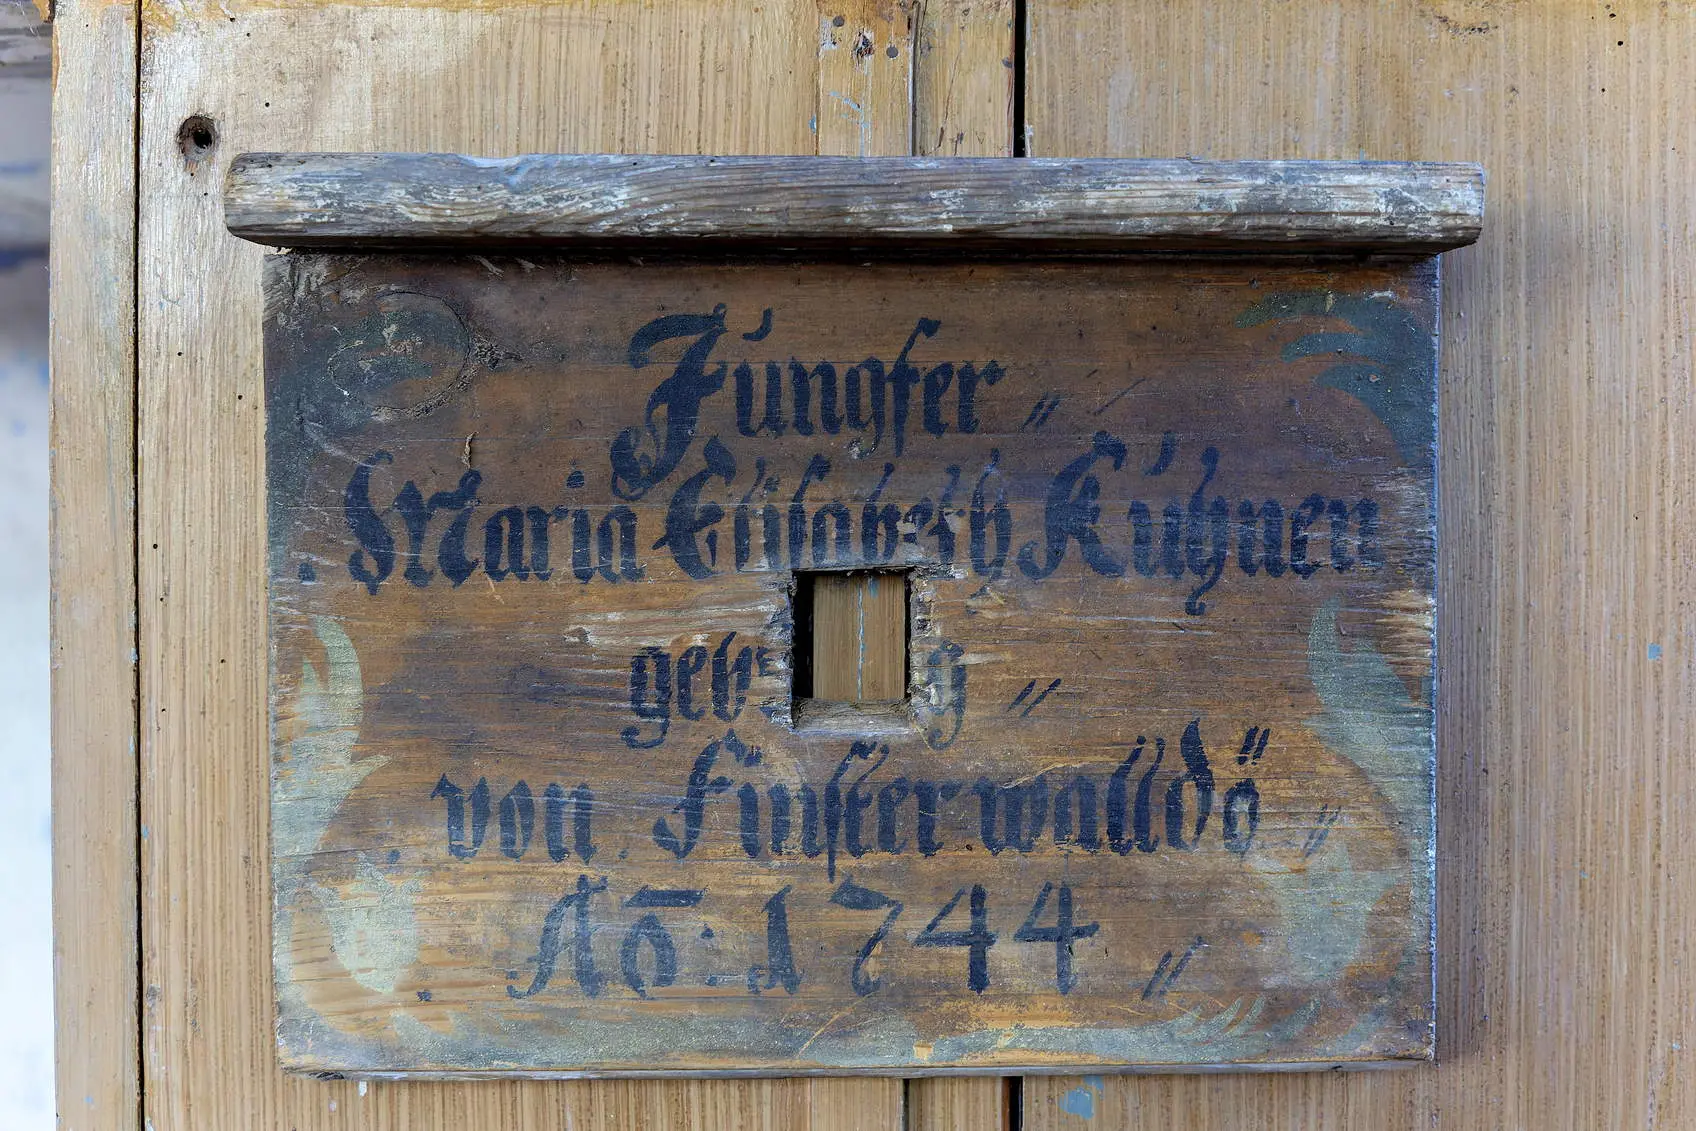 Jungfer „
Maria Elisabeth Kühnen
von Finsterwalldö „
Aō: 1744 „